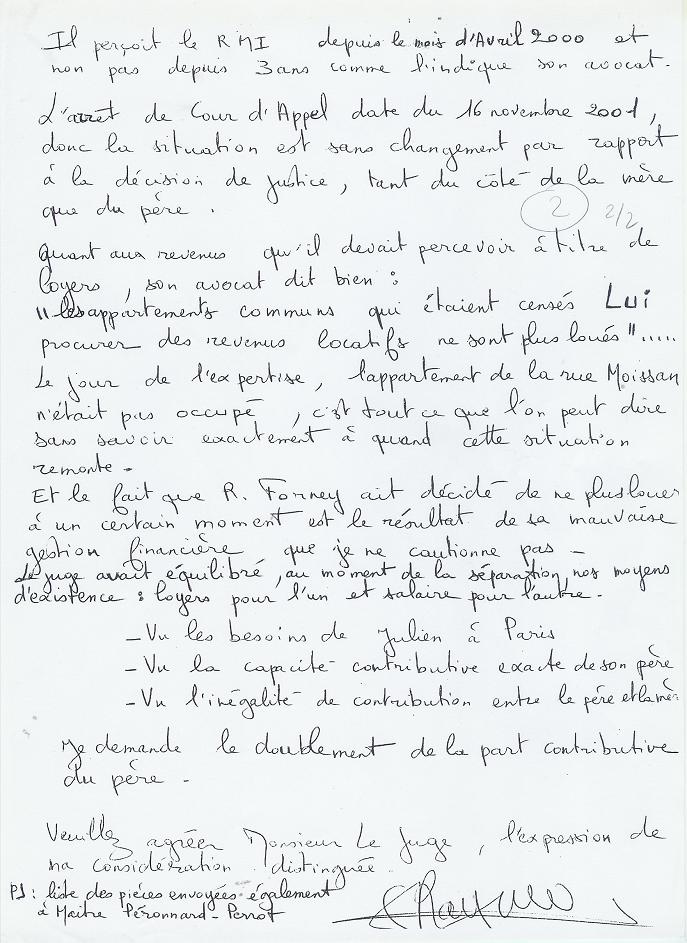 Il perçoit le RMI depuis le mois d'Avril 2000 et
non pas depuis 3 ans comme l'indique son avocat.
L'arrêt de Cour d'Appel date du 16 novembre 2001,
donc la situation est sans changement par rapport
à la décision de justice, tant du côté de la mère
que du père.
2 2/2
Quant aux revenus qu'il devait percevoir à titre de
loyers, son avocat dit bien :
"les appartements communs qui étaient censés Lui
procurer des revenus locatifs ne sont plus loués".....
Le jour de l'expertise, l'appartement de la rue Moissan
n'était pas occupé, c'est tout ce que l'on peut dire
sans savoir exactement à quand cette situation
remonte.
Et le fait que R. Forney ait décidé de ne plus louer
à un certain moment est le résultat de sa mauvaise
gestion financière que je ne cautionne pas -
Le juge avait équilibré, au moment de la séparation nos moyens
d'existence : loyers pour l'un et salaire pour l'autre.
- Vu les besoins de Julien à Paris
- Vu la capacité contributive exacte de son père
- Vu l'inégalité de contribution entre le père et la mère
Je demande le doublement de la part contributive
du père -
Veuillez agréer Monsieur Le Juge, l'expression de
ma considération distinguée.
PS : liste des pièces envoyées également
à Maître Péronnard-Perrot